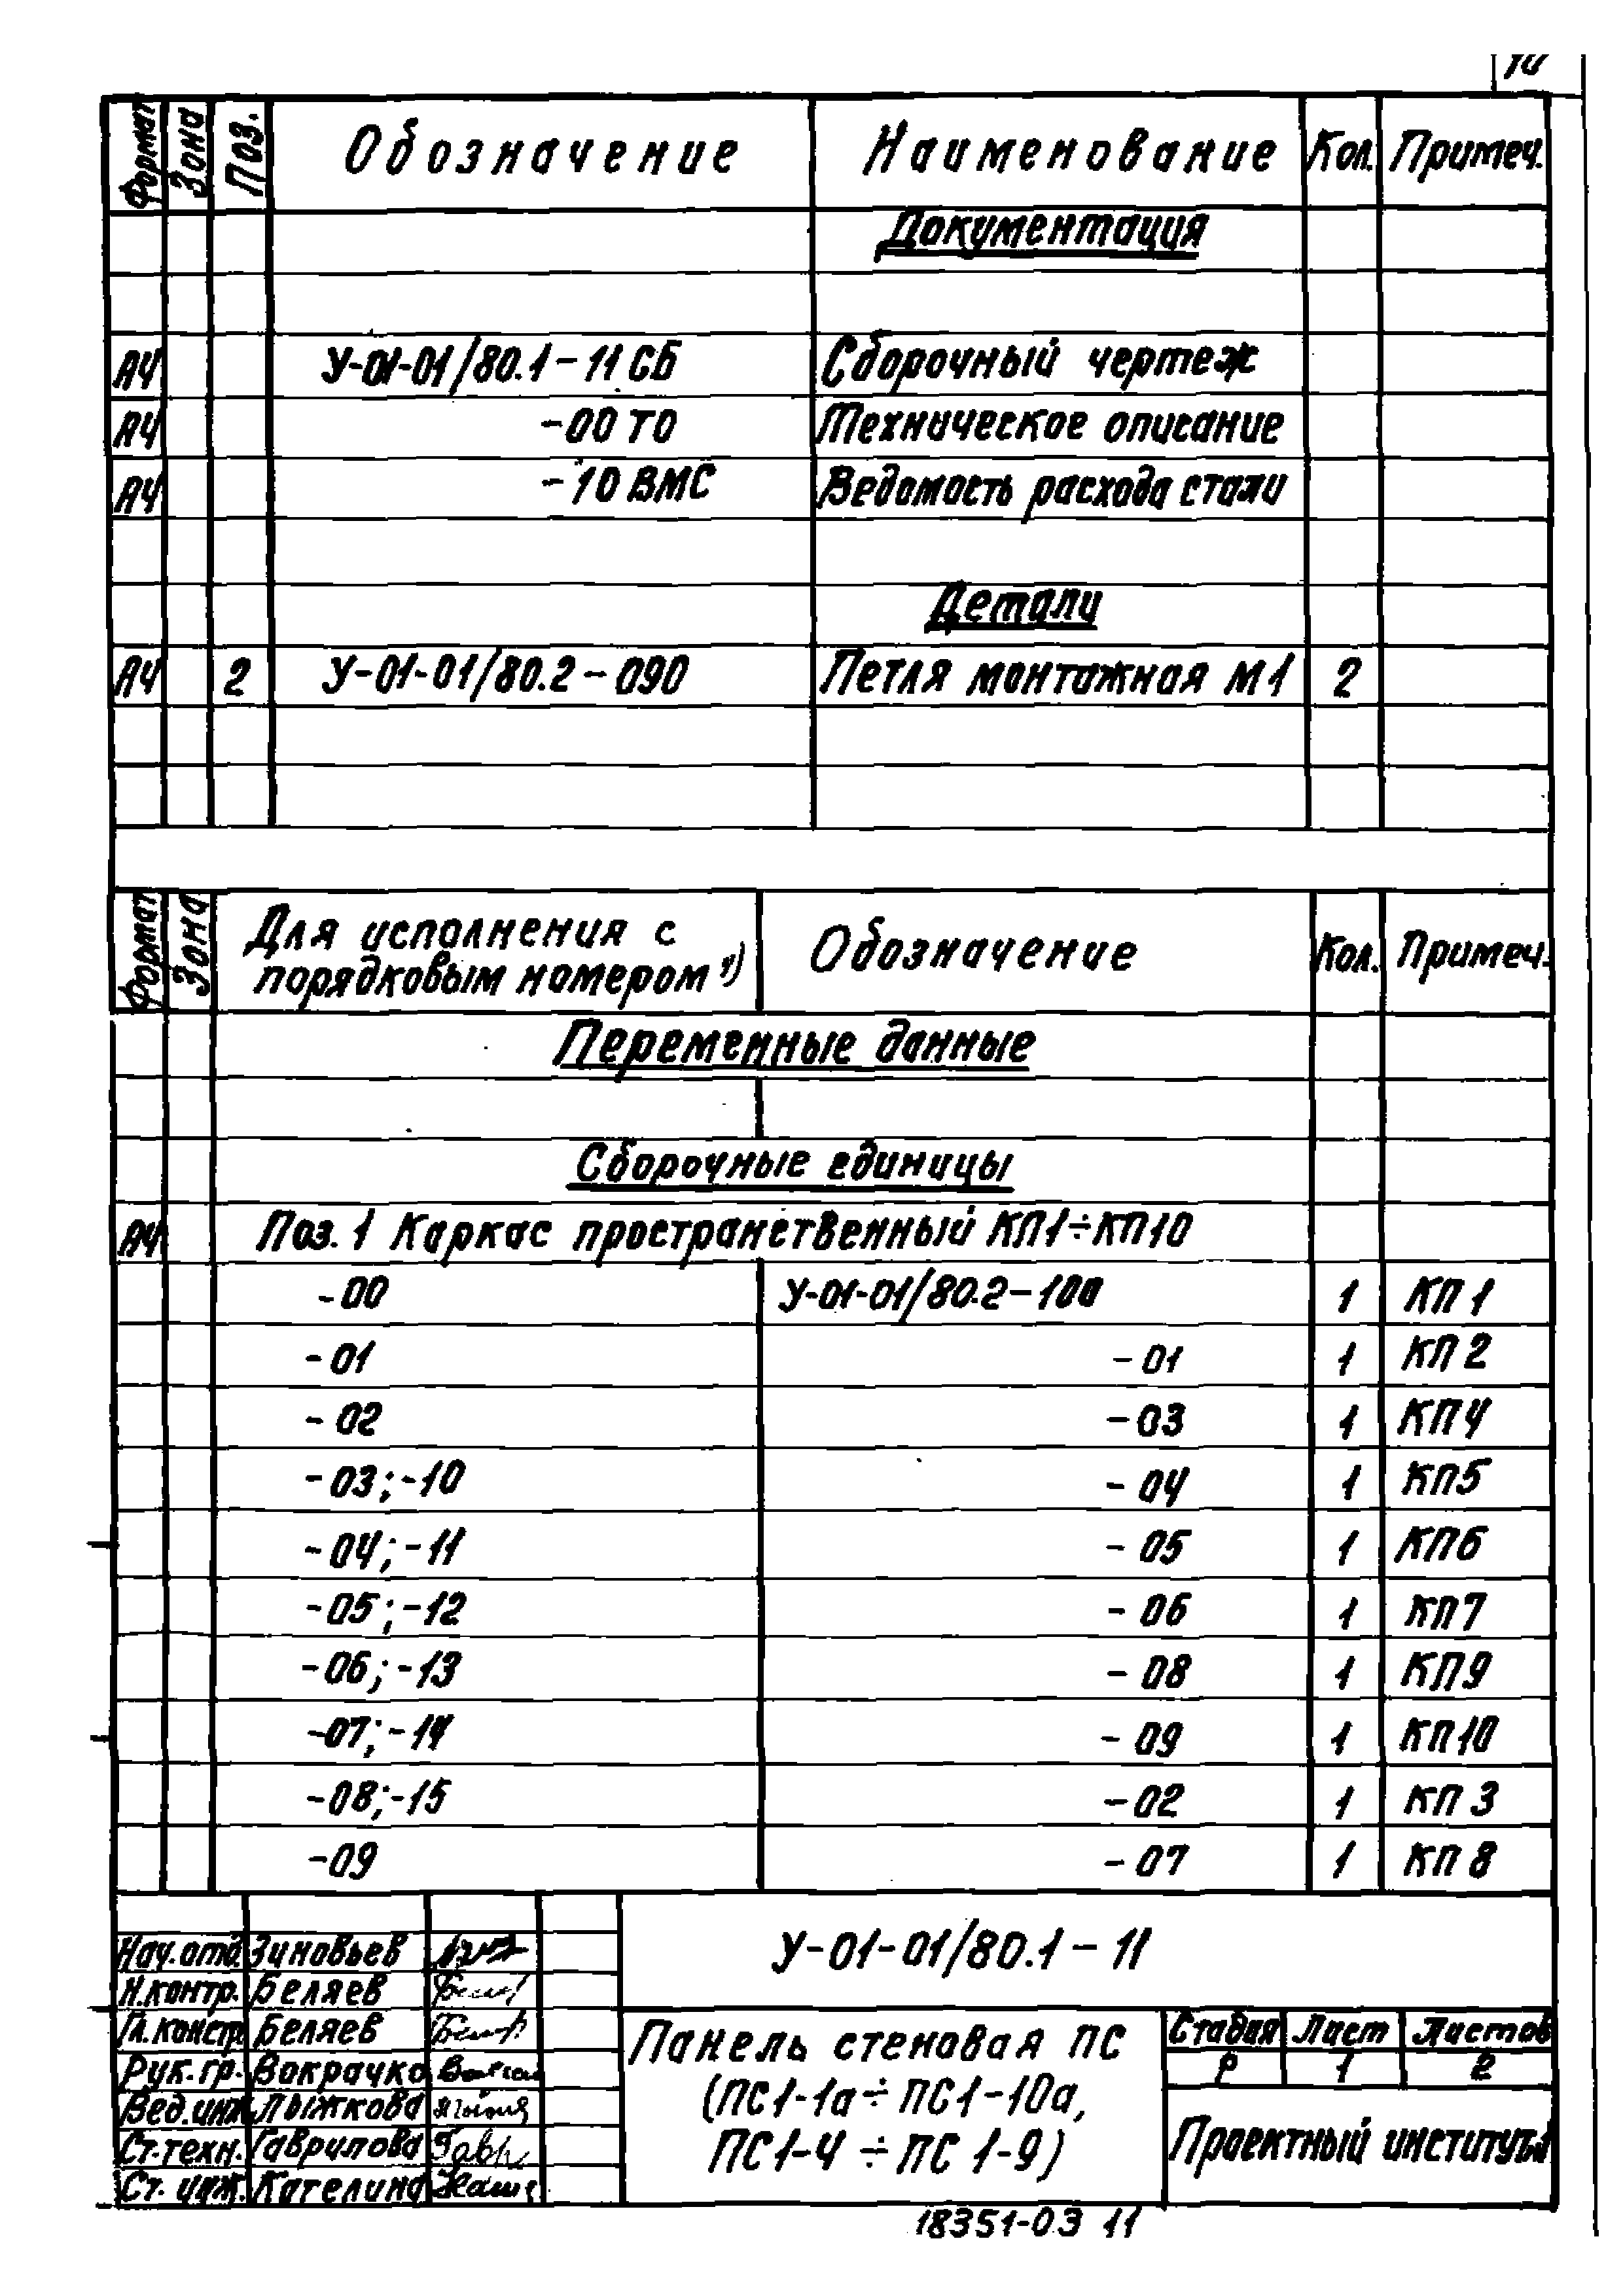 Формат Зона Поз. Обозначение Наименование Кол. Примеч.
Документация
А4 У-01-01/80.1-11 СБ Сборочный чертеж
А4 -00 ТО Техническое описание
А4 -10 ВМС Ведомость расхода стали
Детали
А4 2 У-01-01/80.2-090 Петля монтажная М1 2
Формат Зона Для исполнения с порядковым номером 1) Обозначение Кол. Примеч.
Переменные данные
Сборочные единицы
А4 Поз. 1 Каркас пространственный КП1÷КП10
-00 У-01-01/80.2-100 1 КП 1
-01 -01 1 КП 2
-02 -03 1 КП4
-03;-10 -04 1 КП5
-04;-11 -05 1 КП6
-05;-12 -06 1 КП7
-06;-13 -08 1 КП9
-07;-14 -09 1 КП10
-08;-15 -02 1 КП 3
-09 -07 1 КП 8
Нач.отд. Зиновьев
Н.контр. Беляев
Гл.констр. Беляев
Рук.гр. Вакрачко
Вед.инж. Лыжкова
Ст.техн. Гаврилова
Ст. инж. Кателина
У-01-01/80.1-11
Панель стеновая ПС
(ПС1-1а÷ПС1-10а,
ПС1-4÷ПС 1-9)
Стадия Лист Листов
Р 1 2
Проектный институт №1
18351-03 11